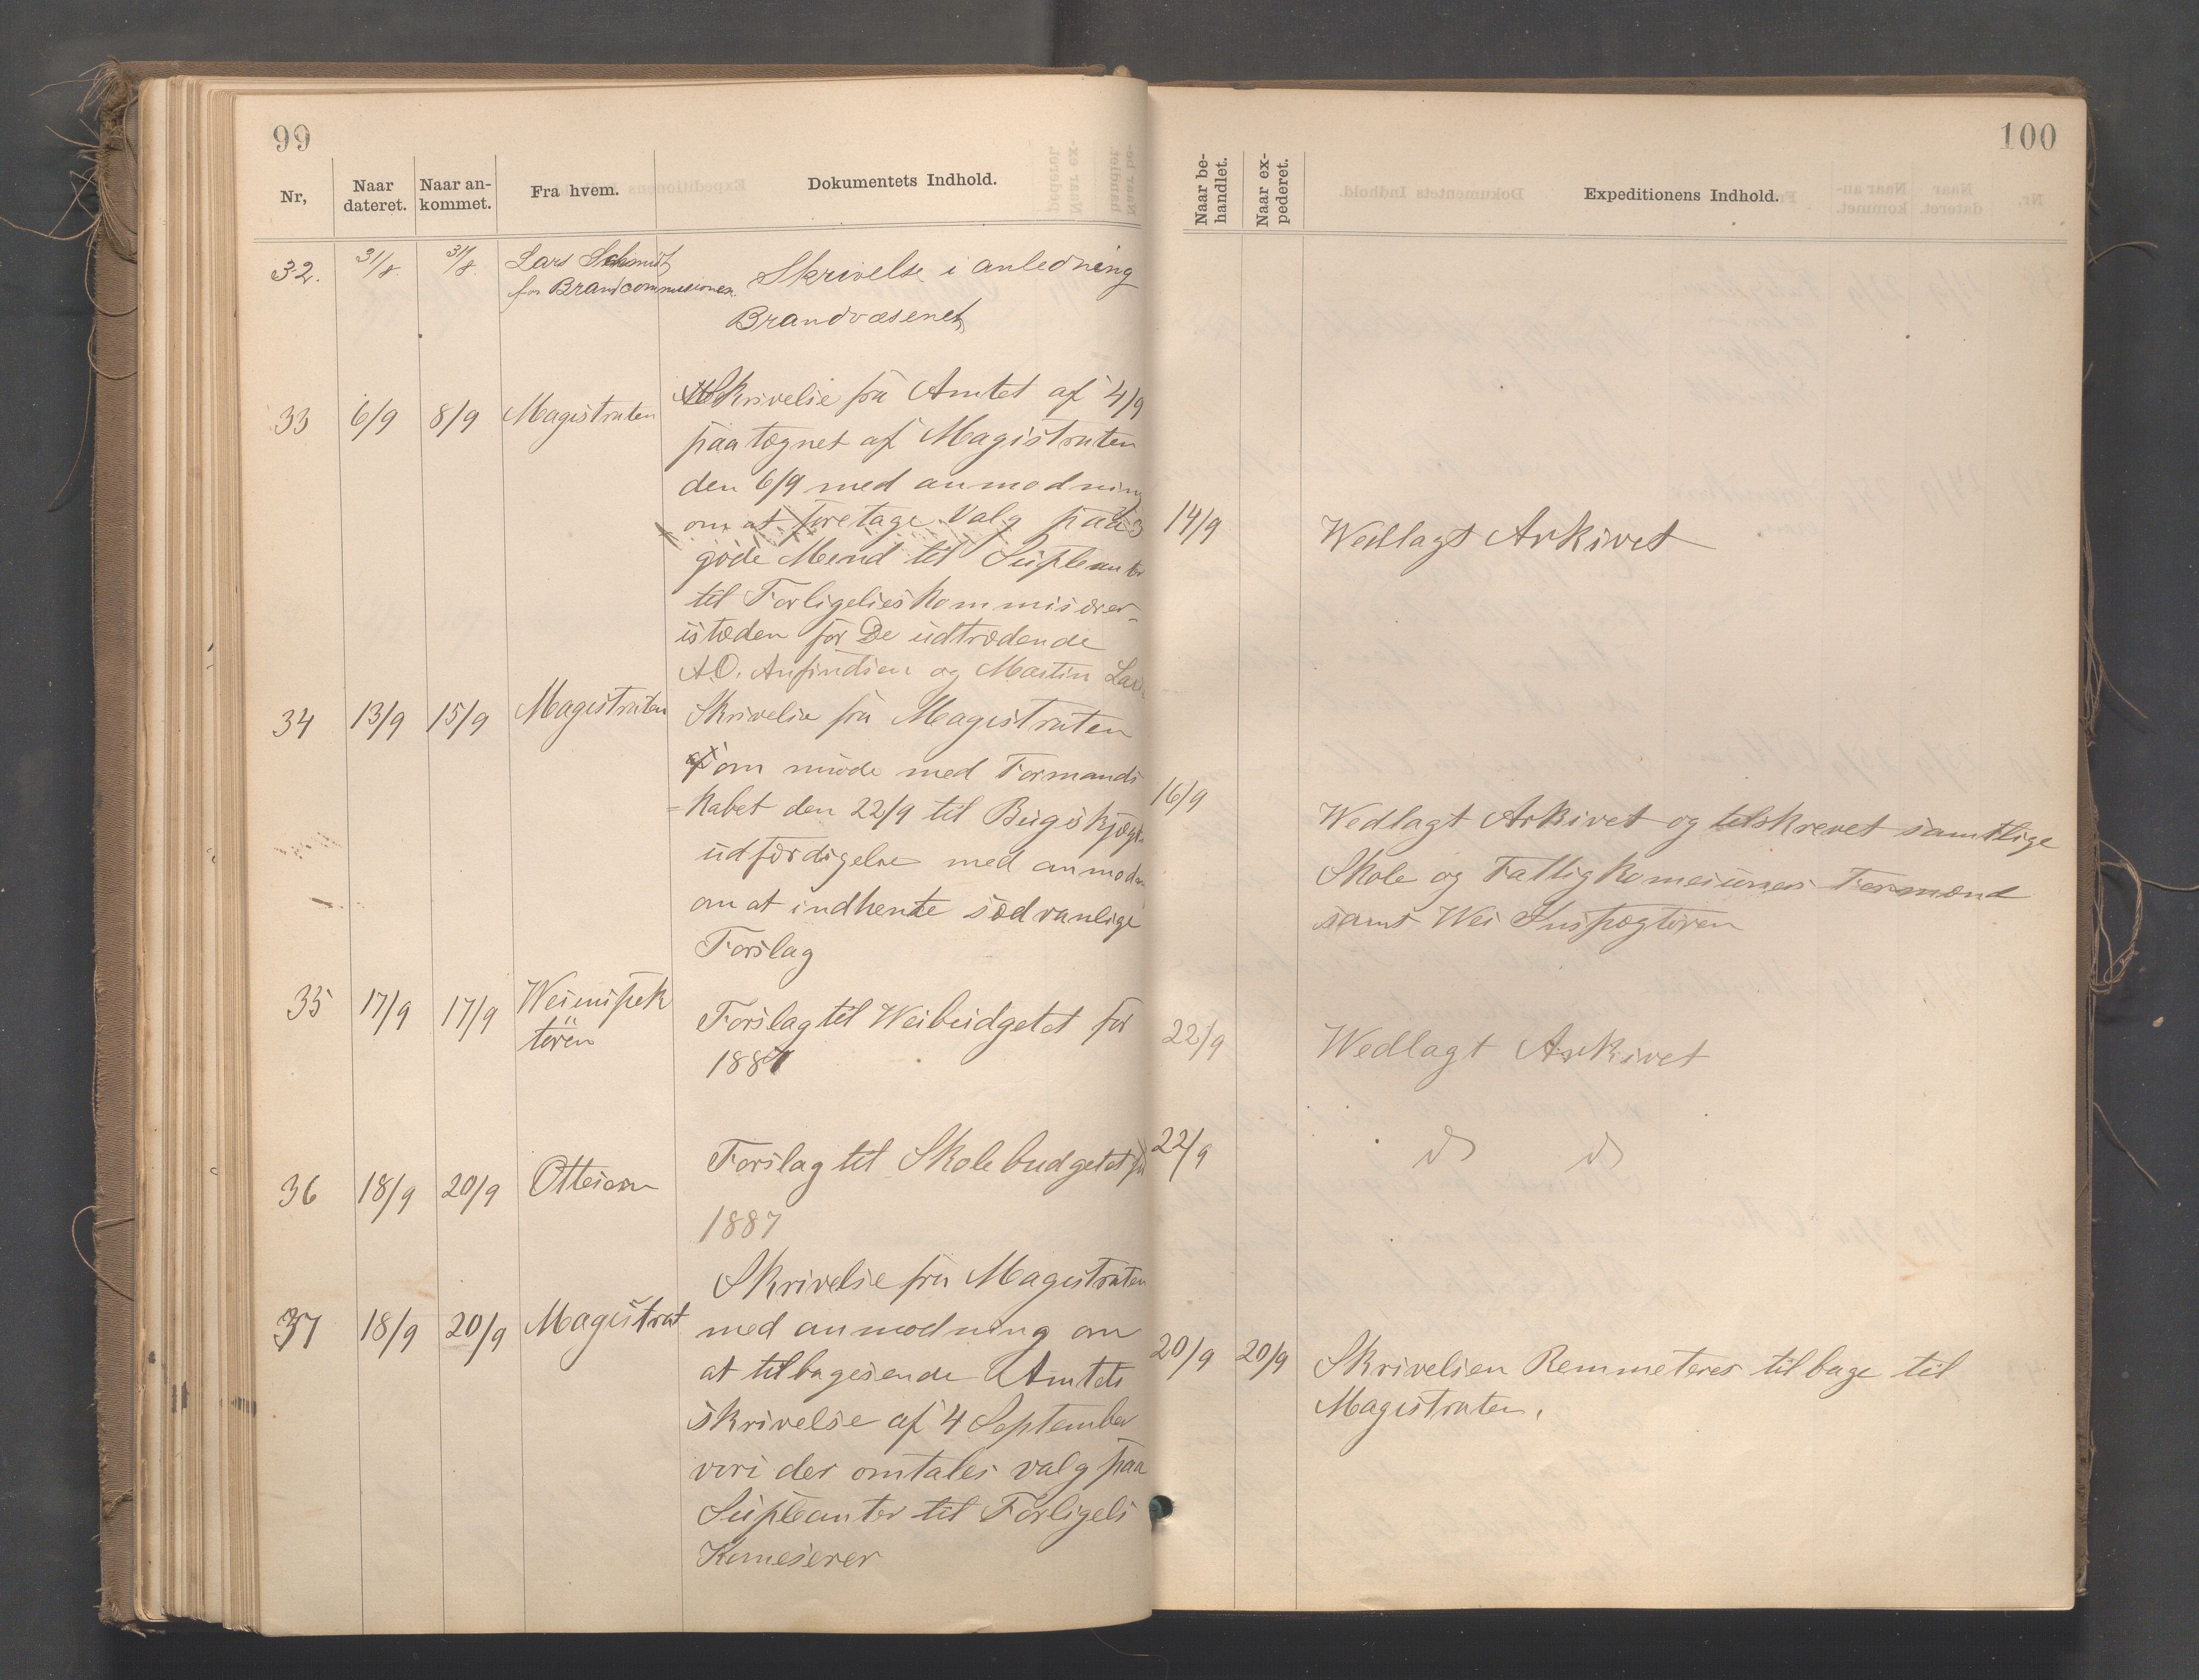 99
Nr,
Naar dateret.
Naar an-kommet.
Fra hvem.
Dokumentets Indhold.
32.
31/8.
31/8.
Lars Schmidt
for Brandcommissionen.
Skrivelse i anledning
Brandvæsenet
33
6/9
8/9
Magistraten
Skrivelse fra Amtet af 4/9
paa tegnet af Magistraten
den 6/9 med anmodning
om at foretage Valg paa 3
gode Mend til Supleanter
til Forligelseskommisærer
isteden for De udtrædende
A.O. Anfindsen og Martin
34
13/9
15/9
Magistraten
Skrivelse fra Magistraten
om møde med Formands
=kabet den 22/9 til
udfærdigelse med anmodn
om at indhente sædvanlige
Forslag
35
17/9
17/9
Weiinspek
tøren
Forslag til Weibudgetet for
1887
36
18/9
20/9
Ottesen
Forslag til Skolebudgetet for
1887
37
18/9
20/9
Magistrat
Skrivelse fra Magistraten
med anmodning om
at tilbagesende Amtets
skrivelse af 4 September
vori der omtales valg paa
Supleanter til Forligels
Komeserer
100
Naar be-handlet.
Naar ex-pederet.
Expeditionens Indhold.
14/9
Wedlagt Arkivet
16/9
Wedlagt Arkivet og tilskrevet samtlige
Skole og Fattigkomeiuners Formænd
samt Wei Inspægtøren
22/9
Wedlagt Arkivet
22/9
do do
20/9
20/9
Skrivelsen Remmeteres tilbage til
Magistraten.